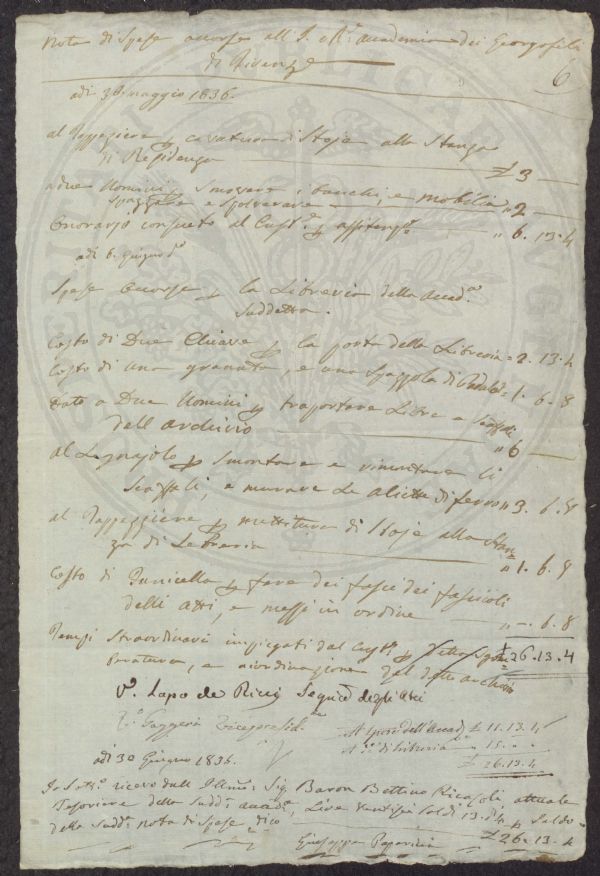 Nota di Spese occorse all' I. e R. Accademia dei Georgofili
di Firenze
6
adì 30 maggio 1836.
al Tappeziere p cavatura di Stoje alla Stanza
di Residenza £ 3 —
a due Uomini p Smovere i banchi, e mobilia
Spazzare e Spolverare " 2 —
Onorario consueto al Cust.e p assistenze " 6. 13. 4
adì 6. Giugno d.o
Spese Occorse p la Libreria della Accad.a
Suddetta.
Costo di Due Chiave p la porta della Libreria = 2. 13. 4
Costo di una granata, e una Spazzola di = 1. 6. 8
Dato a Due Uomini p traportare Libri e Scaffali
dell archivio " 6 —
al Legnajolo p Smontare e rimontare li
Scaffali, e murare Le aliette di ferro " 3. 6. 8
al Tappezziere p mettitura di Stoje alla Stan=
za di Lebreria " 1. 6. 8
Costo di Funicella p fare dei fasci dei fascicoli
delli atti, e messi in ordine " —. 6. 8
Tempi Straordinari impiegati dal Cust.e p
e riordinazione del detto archivio
£ 26. 13. 4
V.o Lapo de Ricci Segret.o degli Atti
A spese dell' Accad.a £ 11. 13. 4
A d.e di Libreria " 15. " "
£ 26. 13. 4
adì 30 Giugno 1836.
Io Sott.o ricevo dall' Illmo: Sig. Baron Bettino Ricasoli attuale
Tesoriere della Sudd.a Accad.a, Lire Ventisei Soldi 13. d 4 p Saldo
della Sudd.a nota di Spese dico £ 26. 13. 4
Giuseppe